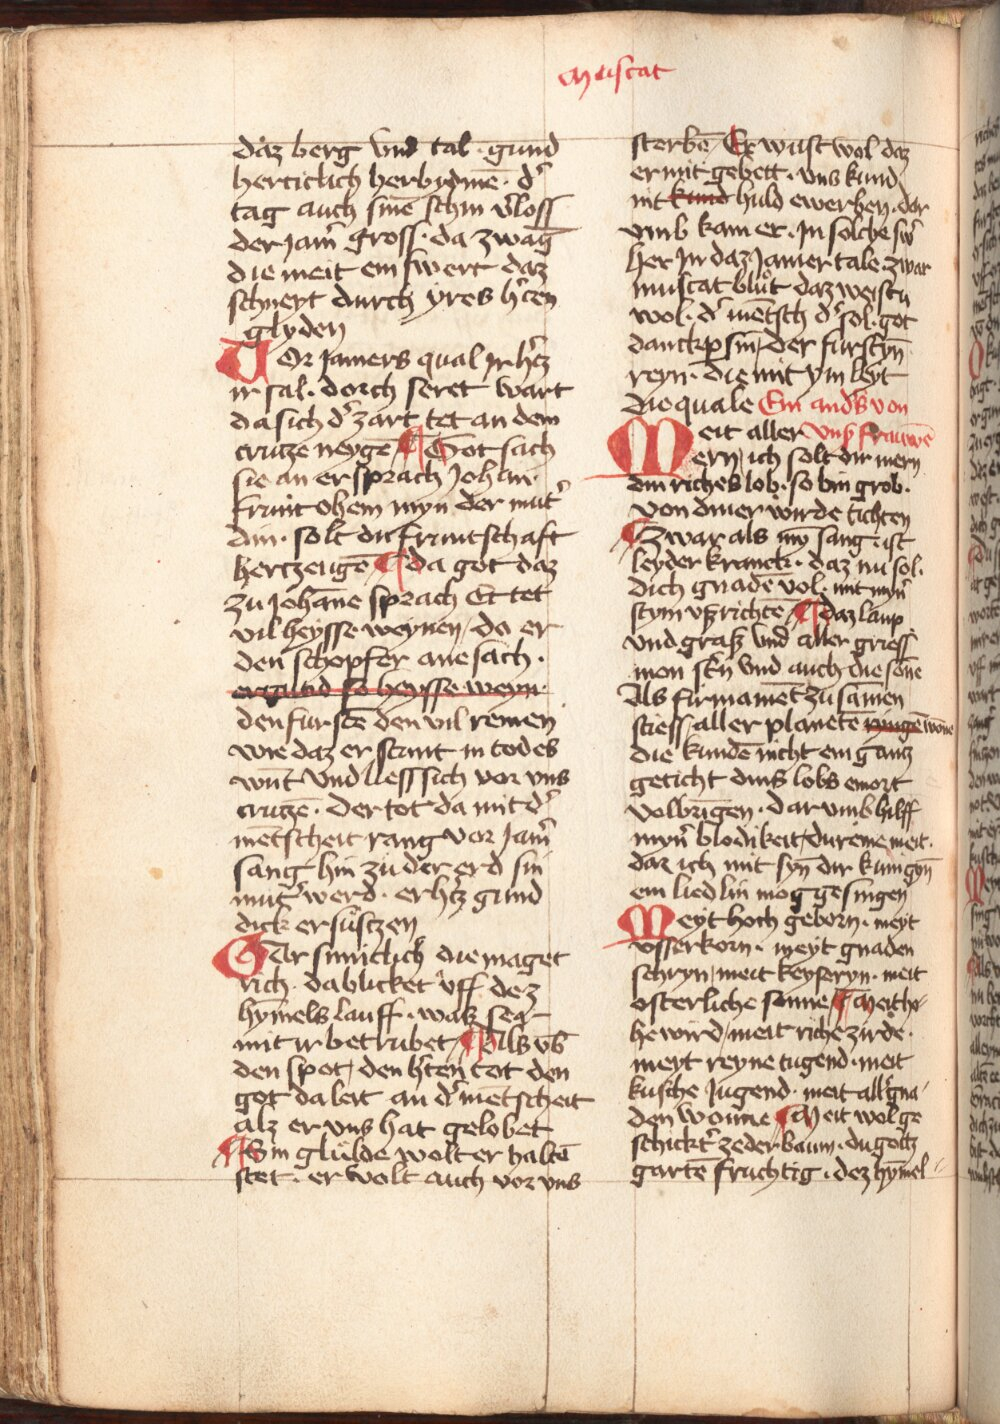 Muscat
daz berg vnd tal · gund
herticlich herbydmē · d'
tag auch sinē schin v'loss
der Jam' gross · da zwang
die meit ein swert daz
schneyt durch yres h'cen
glyden
Vor Jamers qual Jr h'cz
ir sal · dorch seret wart
da sich d' zart tet an dem
cruze neygē Got sach
sie an er sprach Johan ·
frunt ohem myn der mut'
din · solt du fruntschaft
hertzeugē da got daz
zu Johāne sprach Er tet
vil heysse weynen / do er
den schopfer ane sach ·
so heysse weyn
den furstē den vil reinen
wie daz er stunt in todes
wnt vnd liess sich vor vns
cruzē · der tot da mit d'
mētscheit rang vor Jam'
sang hin zu der erd sin
mut' werd · er h'cz gund
dick ersufftzen
Gar sinriclich die maget
rich · da blicket vff dez
hymels lauff · waz ser
mit ir betrubet Als vb
den spot / den h'ten tot den
got da leit an d' mētscheit
alz er vns hat gelobet
Sin glulde wolt er haltē
stet · er wolt auch vor vns
sterbē Er wust wol daz
er mit gebett · vns kund
nit kund huld ewerben · dar
vmb kam er · Jn solche sw'
her Jn daz Jamer tale zwar
muscat blut daz weistu
wol · d' mētsch d' sol · got
danckper sin / der furstyn
reyn · die mit ym leyt
die quale Ein and's von
Meit aller vns' frauwē
ern / ich solt dir mern
din riches lob · so bin grob ·
von diner wirde tichten
Zwar als my sang ist
leyder kranck · daz nu sol ·
dich gnadē vol · mit myn'
stym vzrichtē daz laup
vnd graz vnd aller griess
mon st'n vnd auch die sōne
Als firmamēt zu samen
stiess aller planetē wōne
die kundē nicht ein gantz
geticht dins lobs emort
volbringen · dar vmb hilff
myn' blodikeit / du reine meit ·
daz ich mit syn dir kunigyn
ein liedlin mog gesingen
Meyt hoch geborn · meyt
vsserkorn · meyt gnaden
schryn / meit keyseryn · meit
osterliche sonne Meit ho-
he wird / meit riche zirde ·
meyt reyne tugend · meit
kusche Jugend · meit all' gna-
den wonne Meit wol ge
schickt' zederbaum · du goltz
garte fruchtig · dez hymel-